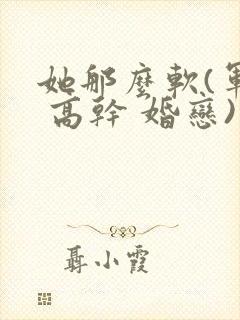 她那麼軟(軍
高幹 婚戀)
聶小霞